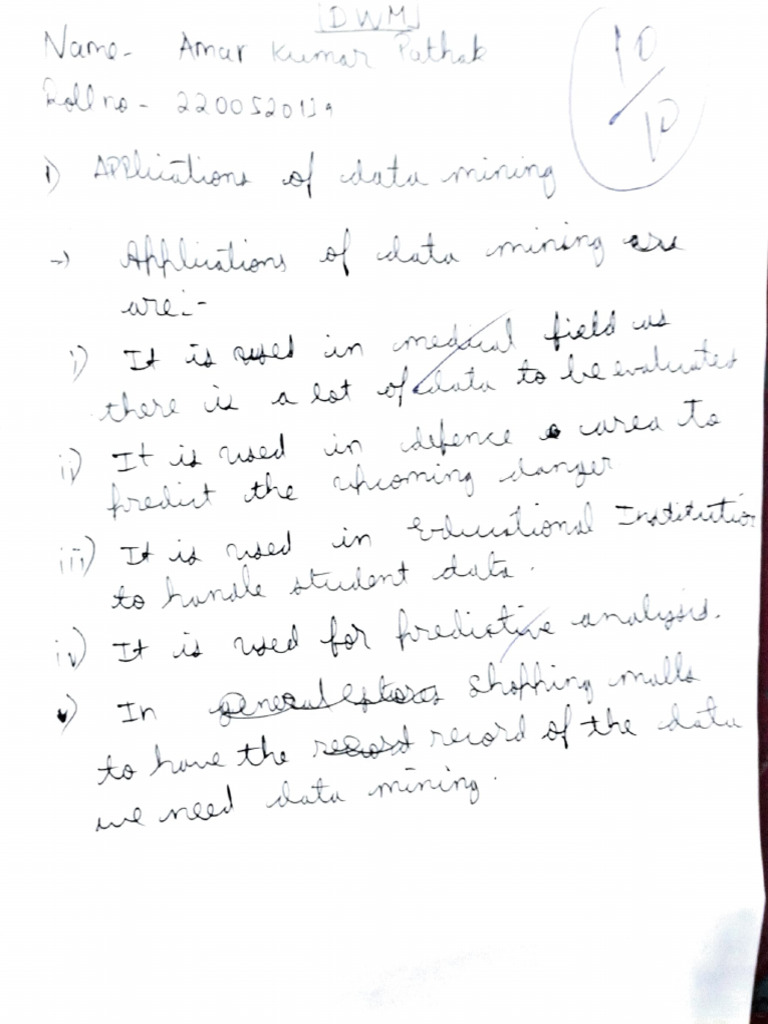 [DWM]
Name- Amar Kumar Pathak
Roll no - 2200520139
10/10
1) Applications of data mining
→ Applications of data mining are
are:-
i) It is used in medical field as
there is a lot of data to be evaluated
ii) It is used in defence area to
predict the upcoming danger.
iii) It is used in Educational Institution
to handle student data.
iv) It is used for predictive analysis.
v) In general stores shopping malls
to have the record record of the data
we need data mining.